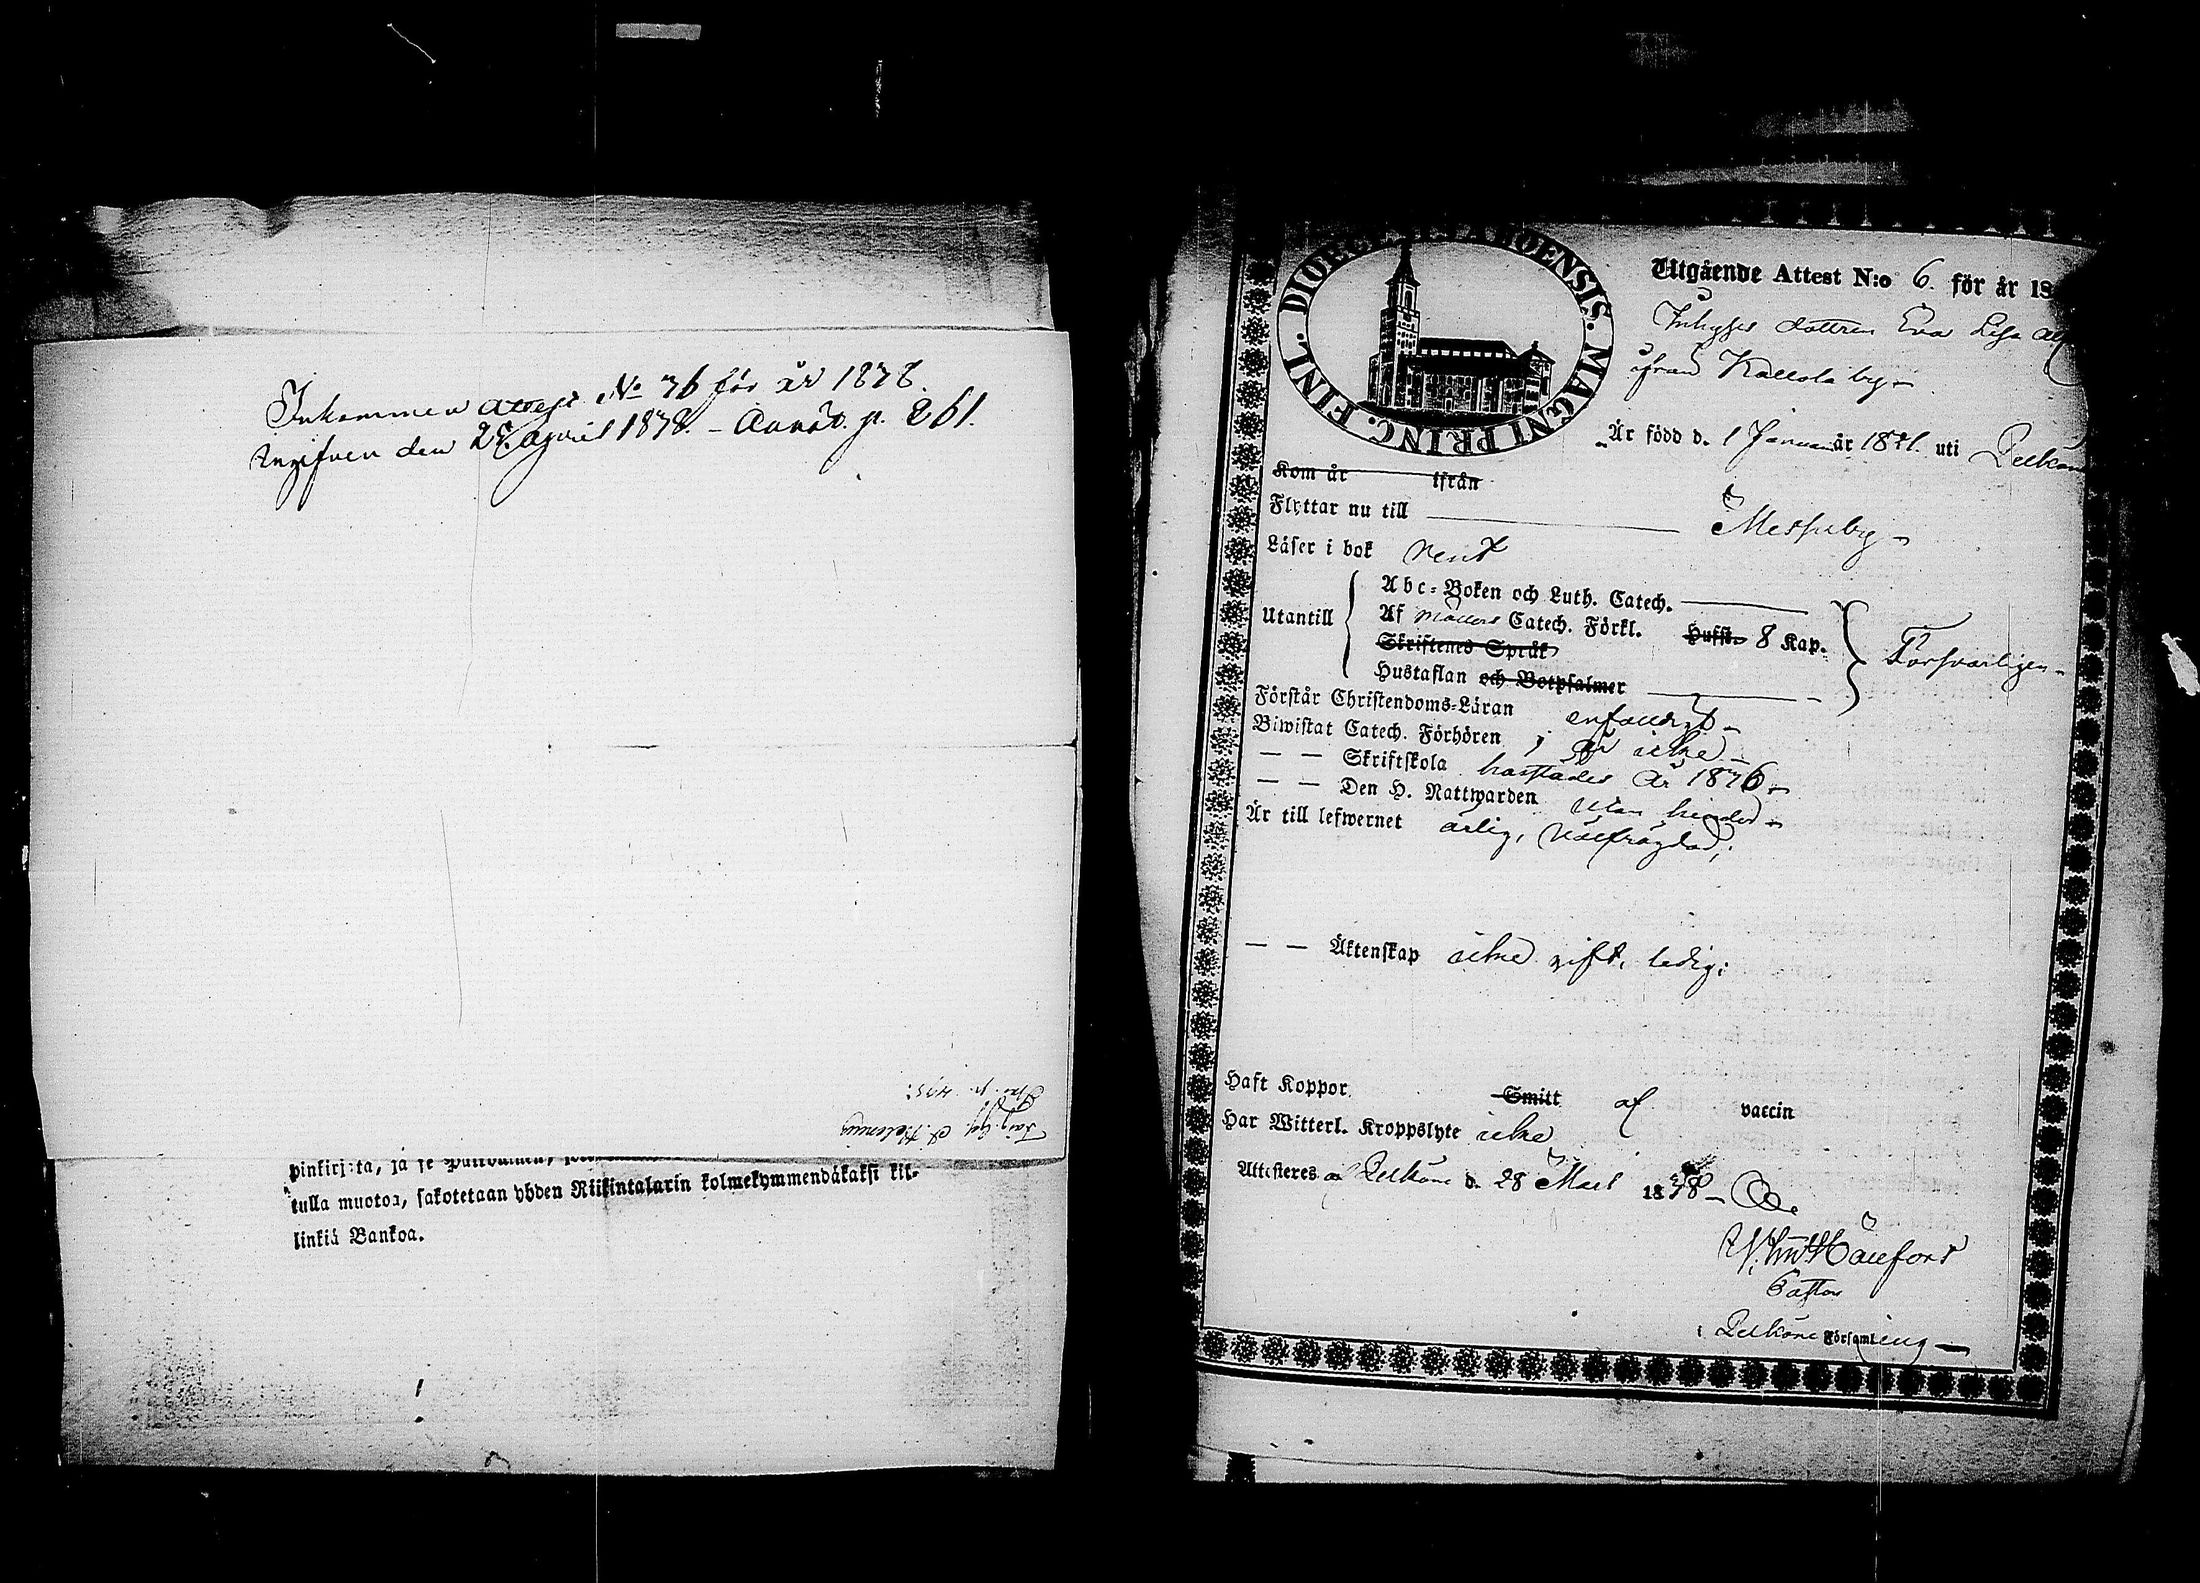 Inkommen attest No 76 för år 1878.
Ingifven den 28 April 1878. – Annot. p. 261.
tulla muotoa, sakotetaan yhden Riikintalarin kolmekymmendäkaksi kil-
linkiä Bankoa.
DIOECES ABOENSIS. MAGNI PRINC. FINL.
Utgående Attest N:o 6. för år 18
Inhyses dottren Eva Lisa
ifrån Kallola by –
Är född d. 1 Januari år 18 uti Pelkäne
Kom år ifrån
Flyttar nu till Messuby –
Läser i bok rent
Abc-Boken och Luth. Catech.
Utantill Af Möllers Catech. Förkl. Hufst. 8 Kap. Försvarligen –
Skriftenes Språk
Hustaflan och Botpsalmer
Förstår Christendoms-Läran enfaldigt –
Biwistat Catech. Förhören
— — Skriftskola år 1876 –
— — Den H. Nattwarden utan hinder –
Är till lefwernet ärlig, välfrägdad;
— — Äktenskap icke gift, ledig;
Haft Koppor Smitt af vaccin
Har Witterl. Kroppslyte icke
Attesteres af Pelkäne d. 28 Mars 1878 –
Pastor
i Pelkäne Församling –